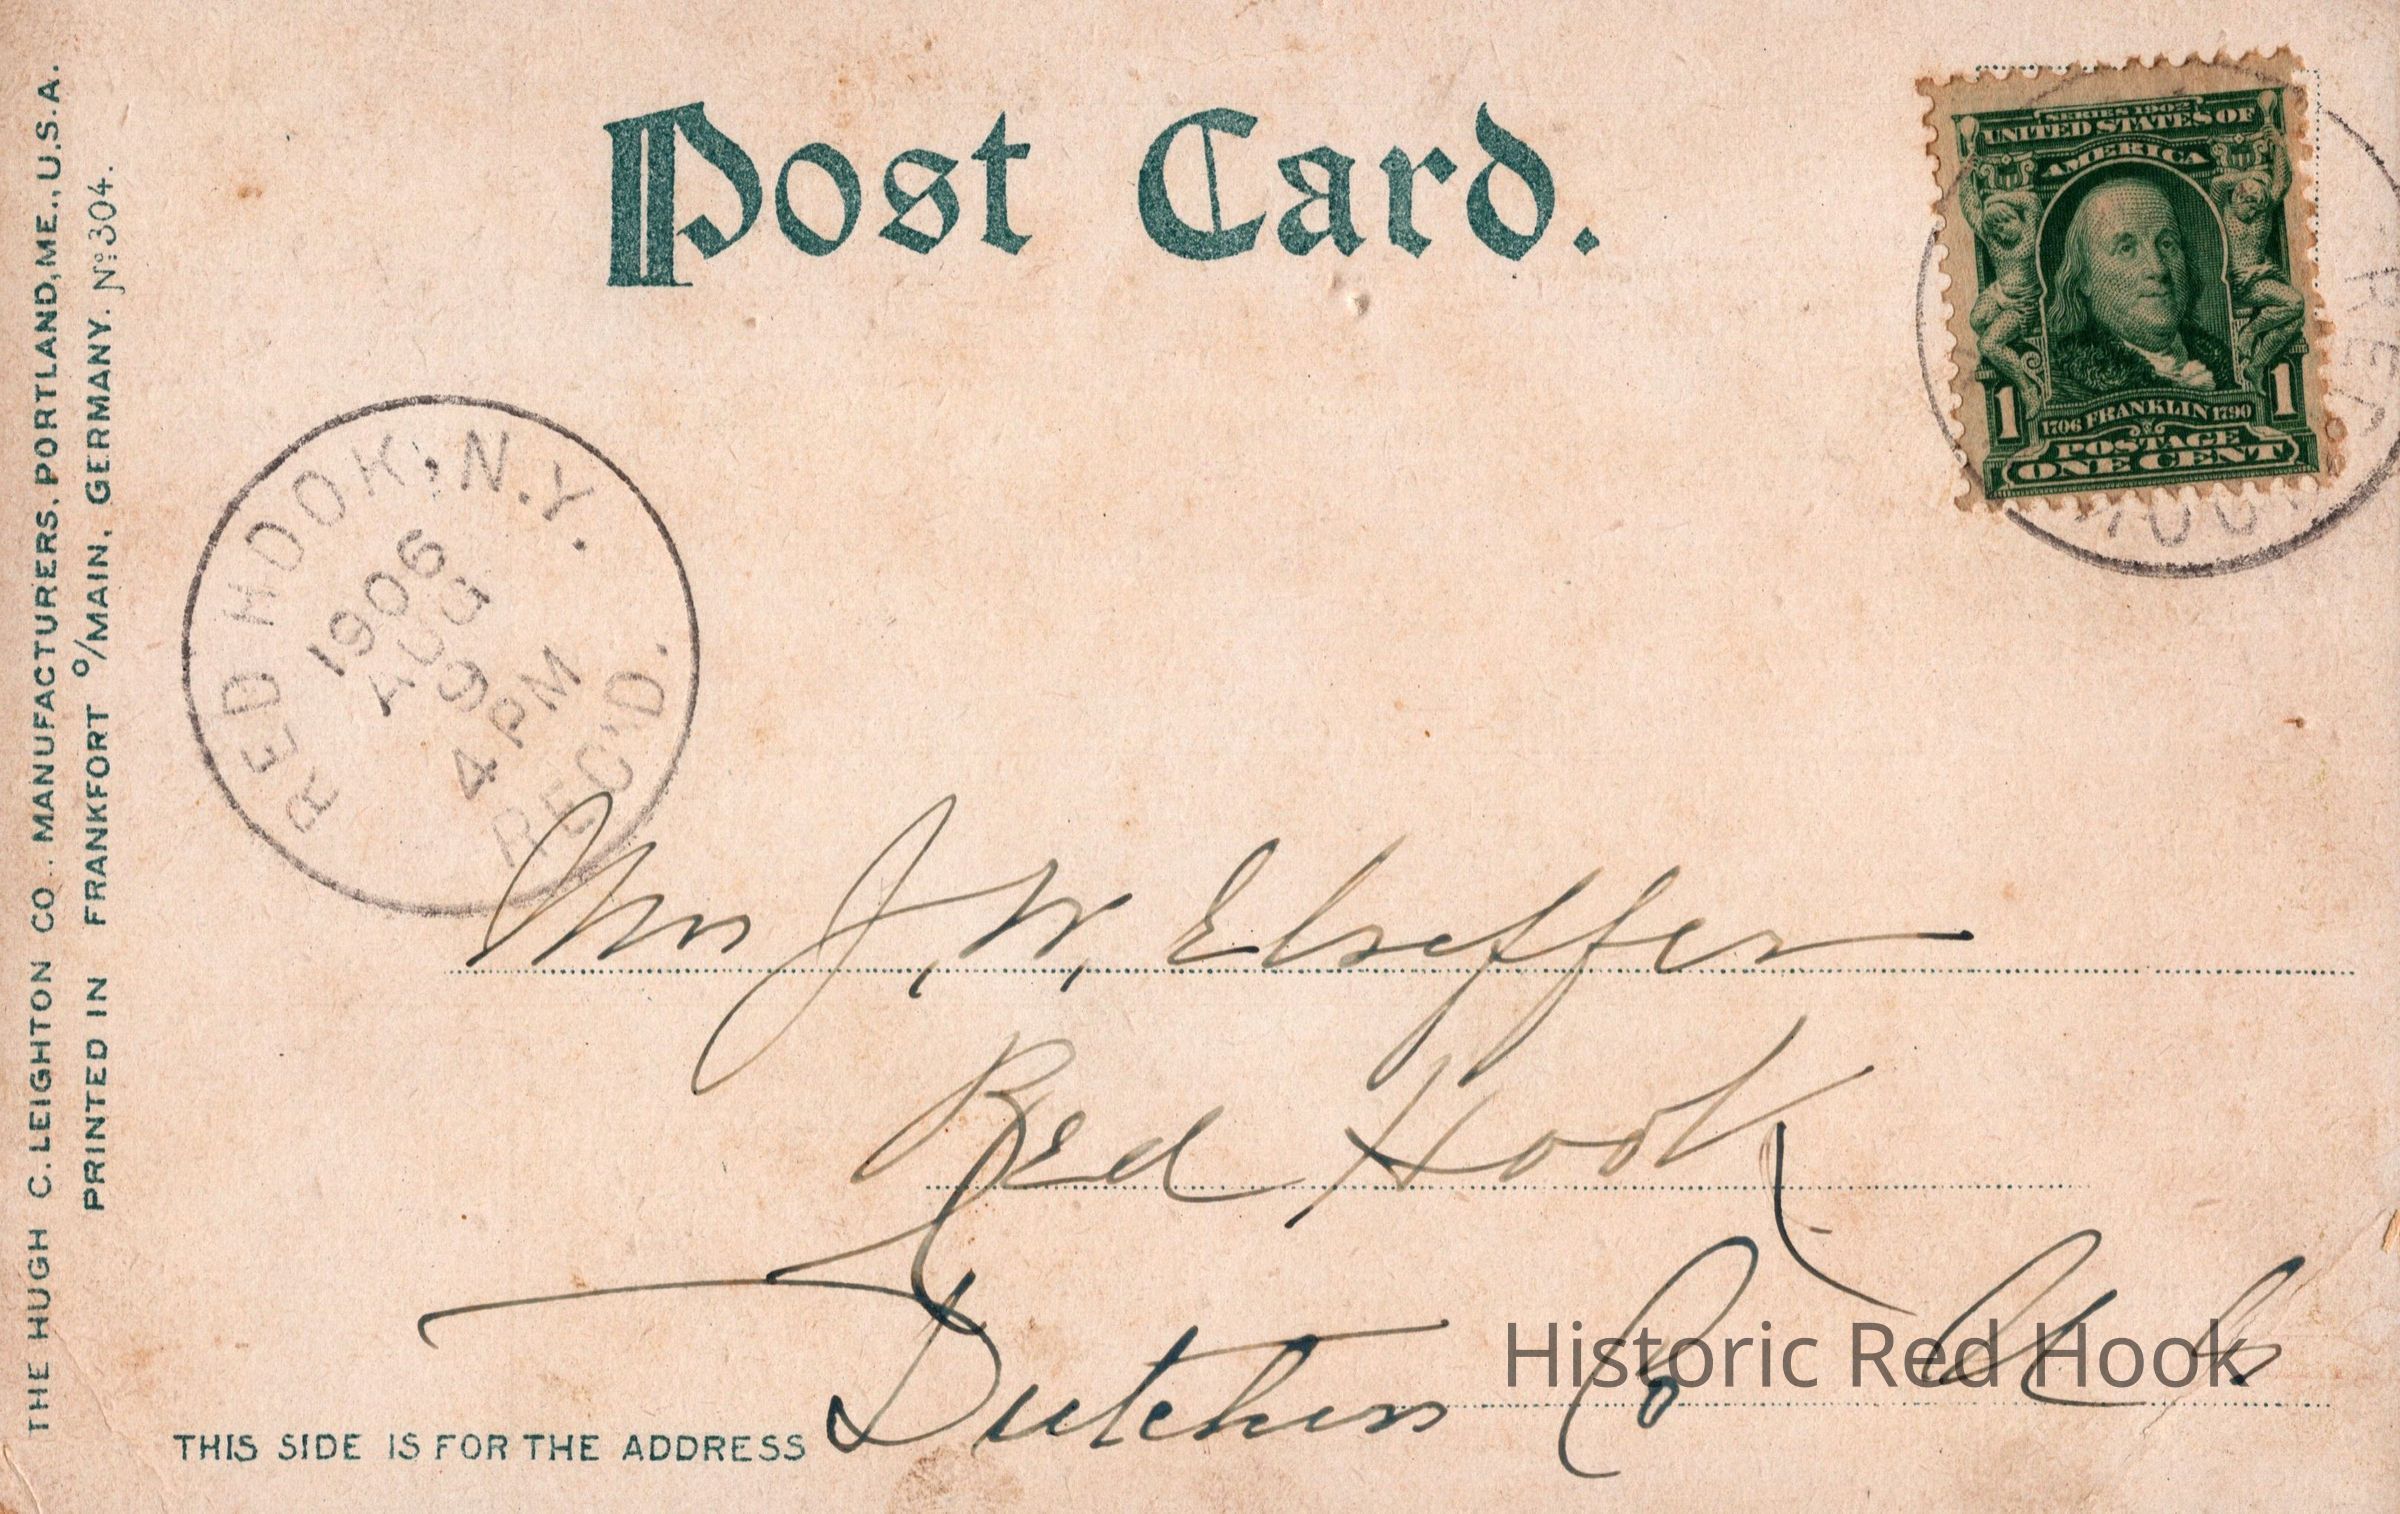 THE HUGH C. LEIGHTON CO., MANUFACTURERS, PORTLAND, ME., U.S.A.
PRINTED IN FRANKFORT o/MAIN, GERMANY. No. 304.
Post Card.
SERIES 1902
UNITED STATES OF
AMERICA
1706 FRANKLIN 1790
1 1
POSTAGE
ONE CENT
RED HOOK, N.Y.
1906
AUG
9
4 PM
REC'D.
Mrs J. W. Elseffer
Red Hook
Dutchess Co N.Y.
Historic Red Hook
THIS SIDE IS FOR THE ADDRESS